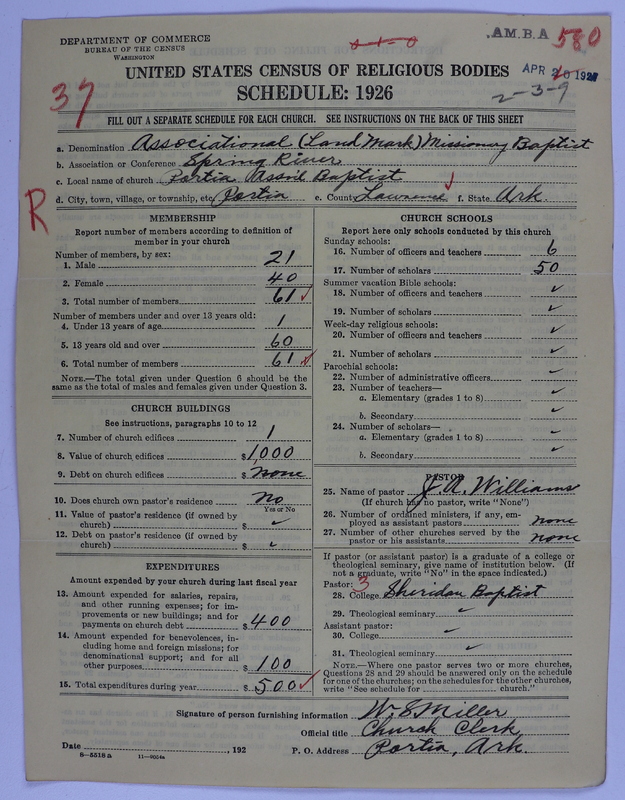 DEPARTMENT OF COMMERCE
BUREAU OF THE CENSUS
WASHINGTON
.A.M.B.A 580
UNITED STATES CENSUS OF RELIGIOUS BODIES
SCHEDULE: 1926
APR 20 1927
2-3-9
37
FILL OUT A SEPARATE SCHEDULE FOR EACH CHURCH. SEE INSTRUCTIONS ON THE BACK OF THIS SHEET
a. Denomination Associational (Land Mark) Missionary Baptist
b. Association or Conference Spring River
c. Local name of church Portia Baptist
d. City, town, village, or township, etc. Portia e. County Lawrence f. State Ark.
R
MEMBERSHIP
Report number of members according to definition of member in your church
Number of members, by sex:
1. Male 21
2. Female 40
3. Total number of members 61 ✓
Number of members under and over 13 years old:
4. Under 13 years of age 1
5. 13 years old and over 60
6. Total number of members 61 ✓
NOTE.—The total given under Question 6 should be the
same as the total of males and females given under Question 3.
CHURCH BUILDINGS
See instructions, paragraphs 10 to 12
7. Number of church edifices 1
8. Value of church edifices $1,000
9. Debt on church edifices $ none
10. Does church own pastor's residence No
Yes or No
11. Value of pastor's residence (if owned by
church) $ ✓
12. Debt on pastor's residence (if owned by
church) $ ✓
EXPENDITURES
Amount expended by your church during last fiscal year
13. Amount expended for salaries, repairs,
and other running expenses; for im-
provements or new buildings; and for
payments on church debt $ 400
14. Amount expended for benevolences, in-
cluding home and foreign missions; for
denominational support; and for all
other purposes $ 100
15. Total expenditures during year $ 500 ✓
CHURCH SCHOOLS
Report here only schools conducted by this church
Sunday schools:
16. Number of officers and teachers 6
17. Number of scholars 50
Summer vacation Bible schools:
18. Number of officers and teachers ✓
19. Number of scholars ✓
Week-day religious schools:
20. Number of officers and teachers ✓
21. Number of scholars ✓
Parochial schools:
22. Number of administrative officers ✓
23. Number of teachers—
a. Elementary (grades 1 to 8) ✓
b. Secondary ✓
24. Number of scholars—
a. Elementary (grades 1 to 8) ✓
b. Secondary ✓
PASTOR
25. Name of pastor J. A. Williams
(If church has no pastor, write "None")
26. Number of ordained ministers, if any, em-
ployed as assistant pastors none
27. Number of other churches served by the
pastor or his assistants none
If pastor (or assistant pastor) is a graduate of a college or
theological seminary, give name of institution below. (If
not a graduate, write "No" in the space indicated.)
Pastor: 3
28. College Sheridan Baptist
29. Theological seminary ✓
Assistant pastor:
30. College ✓
31. Theological seminary ✓
NOTE.—Where one pastor serves two or more churches,
Questions 28 and 29 should be answered only on the schedule
for one of the churches; on the schedules for the other churches,
write "See schedule for church."
Signature of person furnishing information W. S. Miller
Official title Church Clerk,
Date , 192 P. O. Address Portia, Ark.
8-5518 a